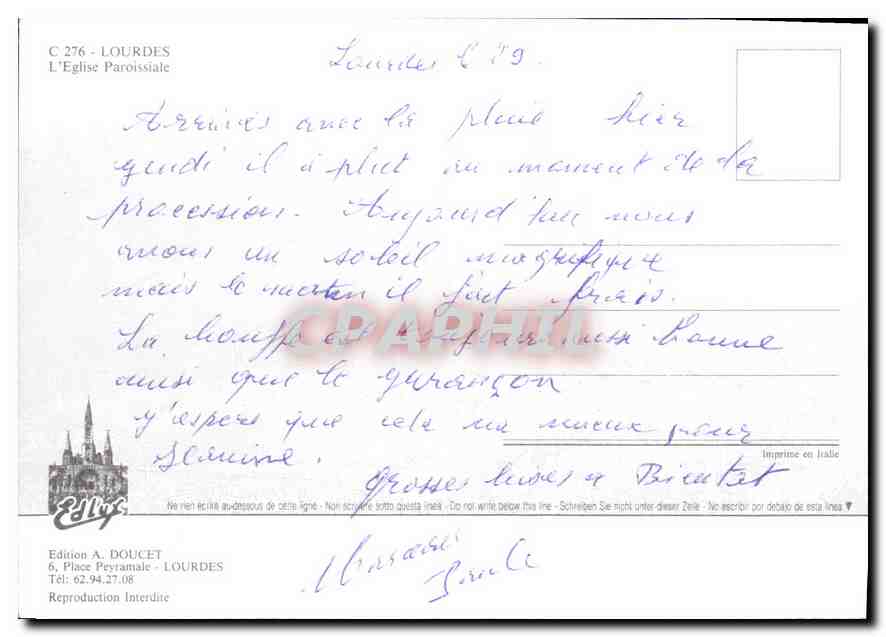 C 276 - LOURDES
L'Eglise Paroissiale
Lourdes le 29.
Arrivés avec la pluie hier
jeudi il a plut au moment de la
procession. Aujourd'hui nous
avons un soleil magnifique
mais le matin il fait frais.
La bouffe est toujours aussi bonne
ainsi que le jurançon
j'espere que cela va mieux pour
grosses bises a Bientot
CPAPHIL
Imprime en Italie
Edlux
Ne rien écrire au-dessous de cette ligne - Non scrivere sotto questa linea - Do not write below this line - Schreiben Sie nicht unter dieser Zeile - No escribir por debajo de esta linea ▼
Edition A. DOUCET
6, Place Peyramale - LOURDES
Tél: 62.94.27.08
Reproduction Interdite